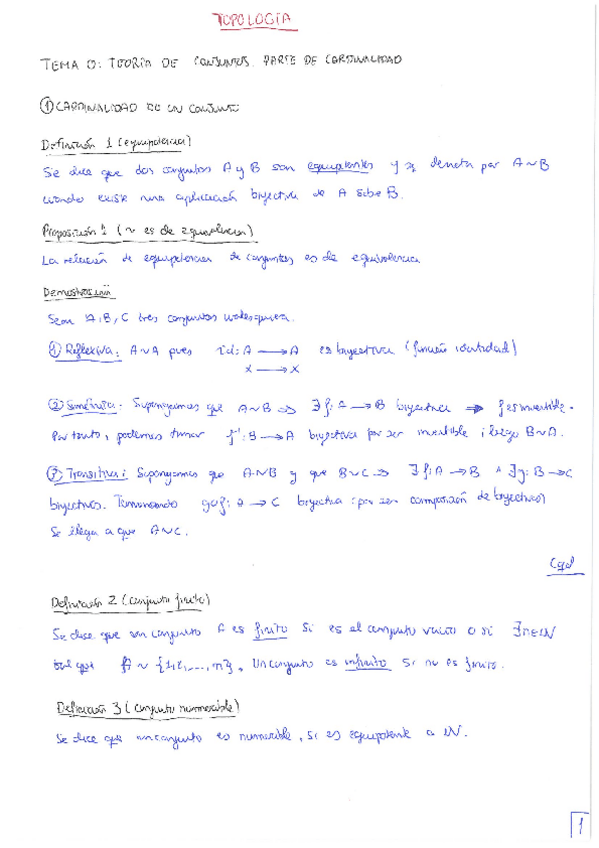 TOPOLOGÍA
TEMA 0: TEORÍA DE CONJUNTOS. PARTE DE CARDINALIDAD
① CARDINALIDAD DE UN CONJUNTO
Definición 1 (equipotencia)
Se dice que dos conjuntos A y B son equipotentes y se denota por A ~ B
cuando existe una aplicación biyectiva de A sobre B.
Proposición 1 (~ es de equivalencia)
La relación de equipotencia de conjuntos es de equivalencia
Demostración
Sean A, B, C tres conjuntos cualesquiera.
① Reflexiva: A ~ A pues id: A → A es biyectiva (función identidad)
x → x
② Simétrica: Supongamos que A ~ B ⇒ ∃ f: A → B biyectiva ⇒ f es invertible.
Por tanto, podemos tomar f⁻¹: B → A biyectiva por ser invertible, luego B ~ A.
③ Transitiva: Supongamos que A ~ B y que B ~ C ⇒ ∃ f: A → B ∧ ∃ g: B → C
biyectivas. Tomando g∘f: A → C biyectiva (por ser composición de biyectivas)
Se llega a que A ~ C.
Cqd
Definición 2 (conjunto finito)
Se dice que un conjunto A es finito si es el conjunto vacío o si ∃ n ∈ ℕ
tal que A ~ {1, 2, ..., n}. Un conjunto es infinito si no es finito.
Definición 3 (conjunto numerable)
Se dice que un conjunto es numerable, si es equipotente a ℕ.
1